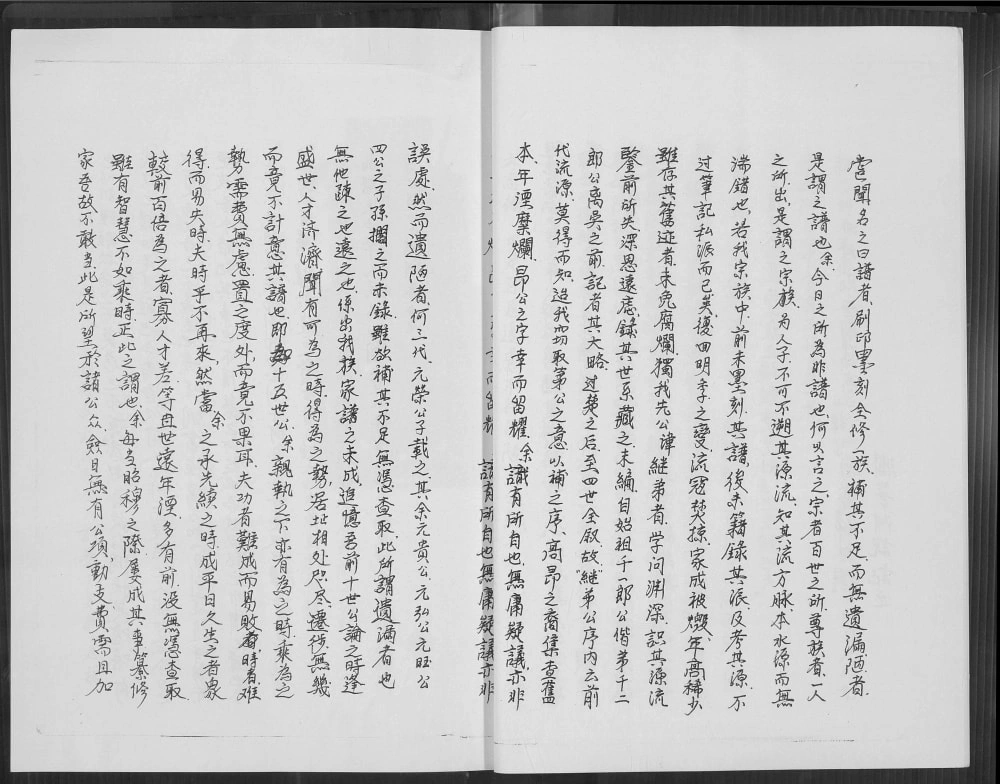 嘗聞名之曰譜者、刷印墨刻全修一族、補其不足、而無遺漏陋者、
是謂之譜也、余今日之所為非譜也、何以言之、宗者百世之所尊、族者一人
之所出、是謂之宗族、為人子不可不遡其源流、知其流方脉、本水源而無
淆錯也、若我宗族中、前未墨刻其譜、後未籍錄其派、及考其源、不
过筆記私派而已矣、復因明季之變、流寇焚掠、家成被燬、年高稀少
雖存其舊迹者、未免腐爛、獨我先公諱継弟者、学问渊深、訳其源流
鑒前所失、深思遠慮、錄其世系藏之、未縞、自始祖千一郎公偕弟千二
郎公离吴之前、記者其大略、过楚之后、至四世全叙、故継弟公序内云前
代流源莫得而知、迨我切取第公之意、以補之序、高昂之裔集查舊
本、年湮糜爛、昂公之字幸而留耀、余識有所自也、無庸疑議、亦非
而留耀 識有所自也、無庸疑議亦非
誤處、然而遺陋者、何三代、元榮公子載之、其余元貴公、元弘公元旺公
四公之子孫擱之而未錄、雖欲補其不足、無憑查取、此所謂遺漏者也
無他疎之也遠之也、係出我族、家譜之未成、追憶吾前十世公論之時、逢
盛世、人才济濟聞有可為之時、得為之勢、居址相处咫尽、遷徙無幾
而竟不計意其譜也、即十五世公、余親執之下亦有為之時、乘為之
勢、需費無慮、置之度外、而竟不果耳、夫功者難成而易敗、時者难
得而易失、時夫時乎不再來、然當余之承先續之時、成平日久、生之者衆
較前百倍、為之者寡、人才差等、且世遠年湮、多有前没無憑查取
雖有智慧不如乘時、正此之謂也、余每当昭穆之際、屢成其事、纂修
家吾故不敢当此、是所望於諸公众、僉曰無有公項、動支費需且加